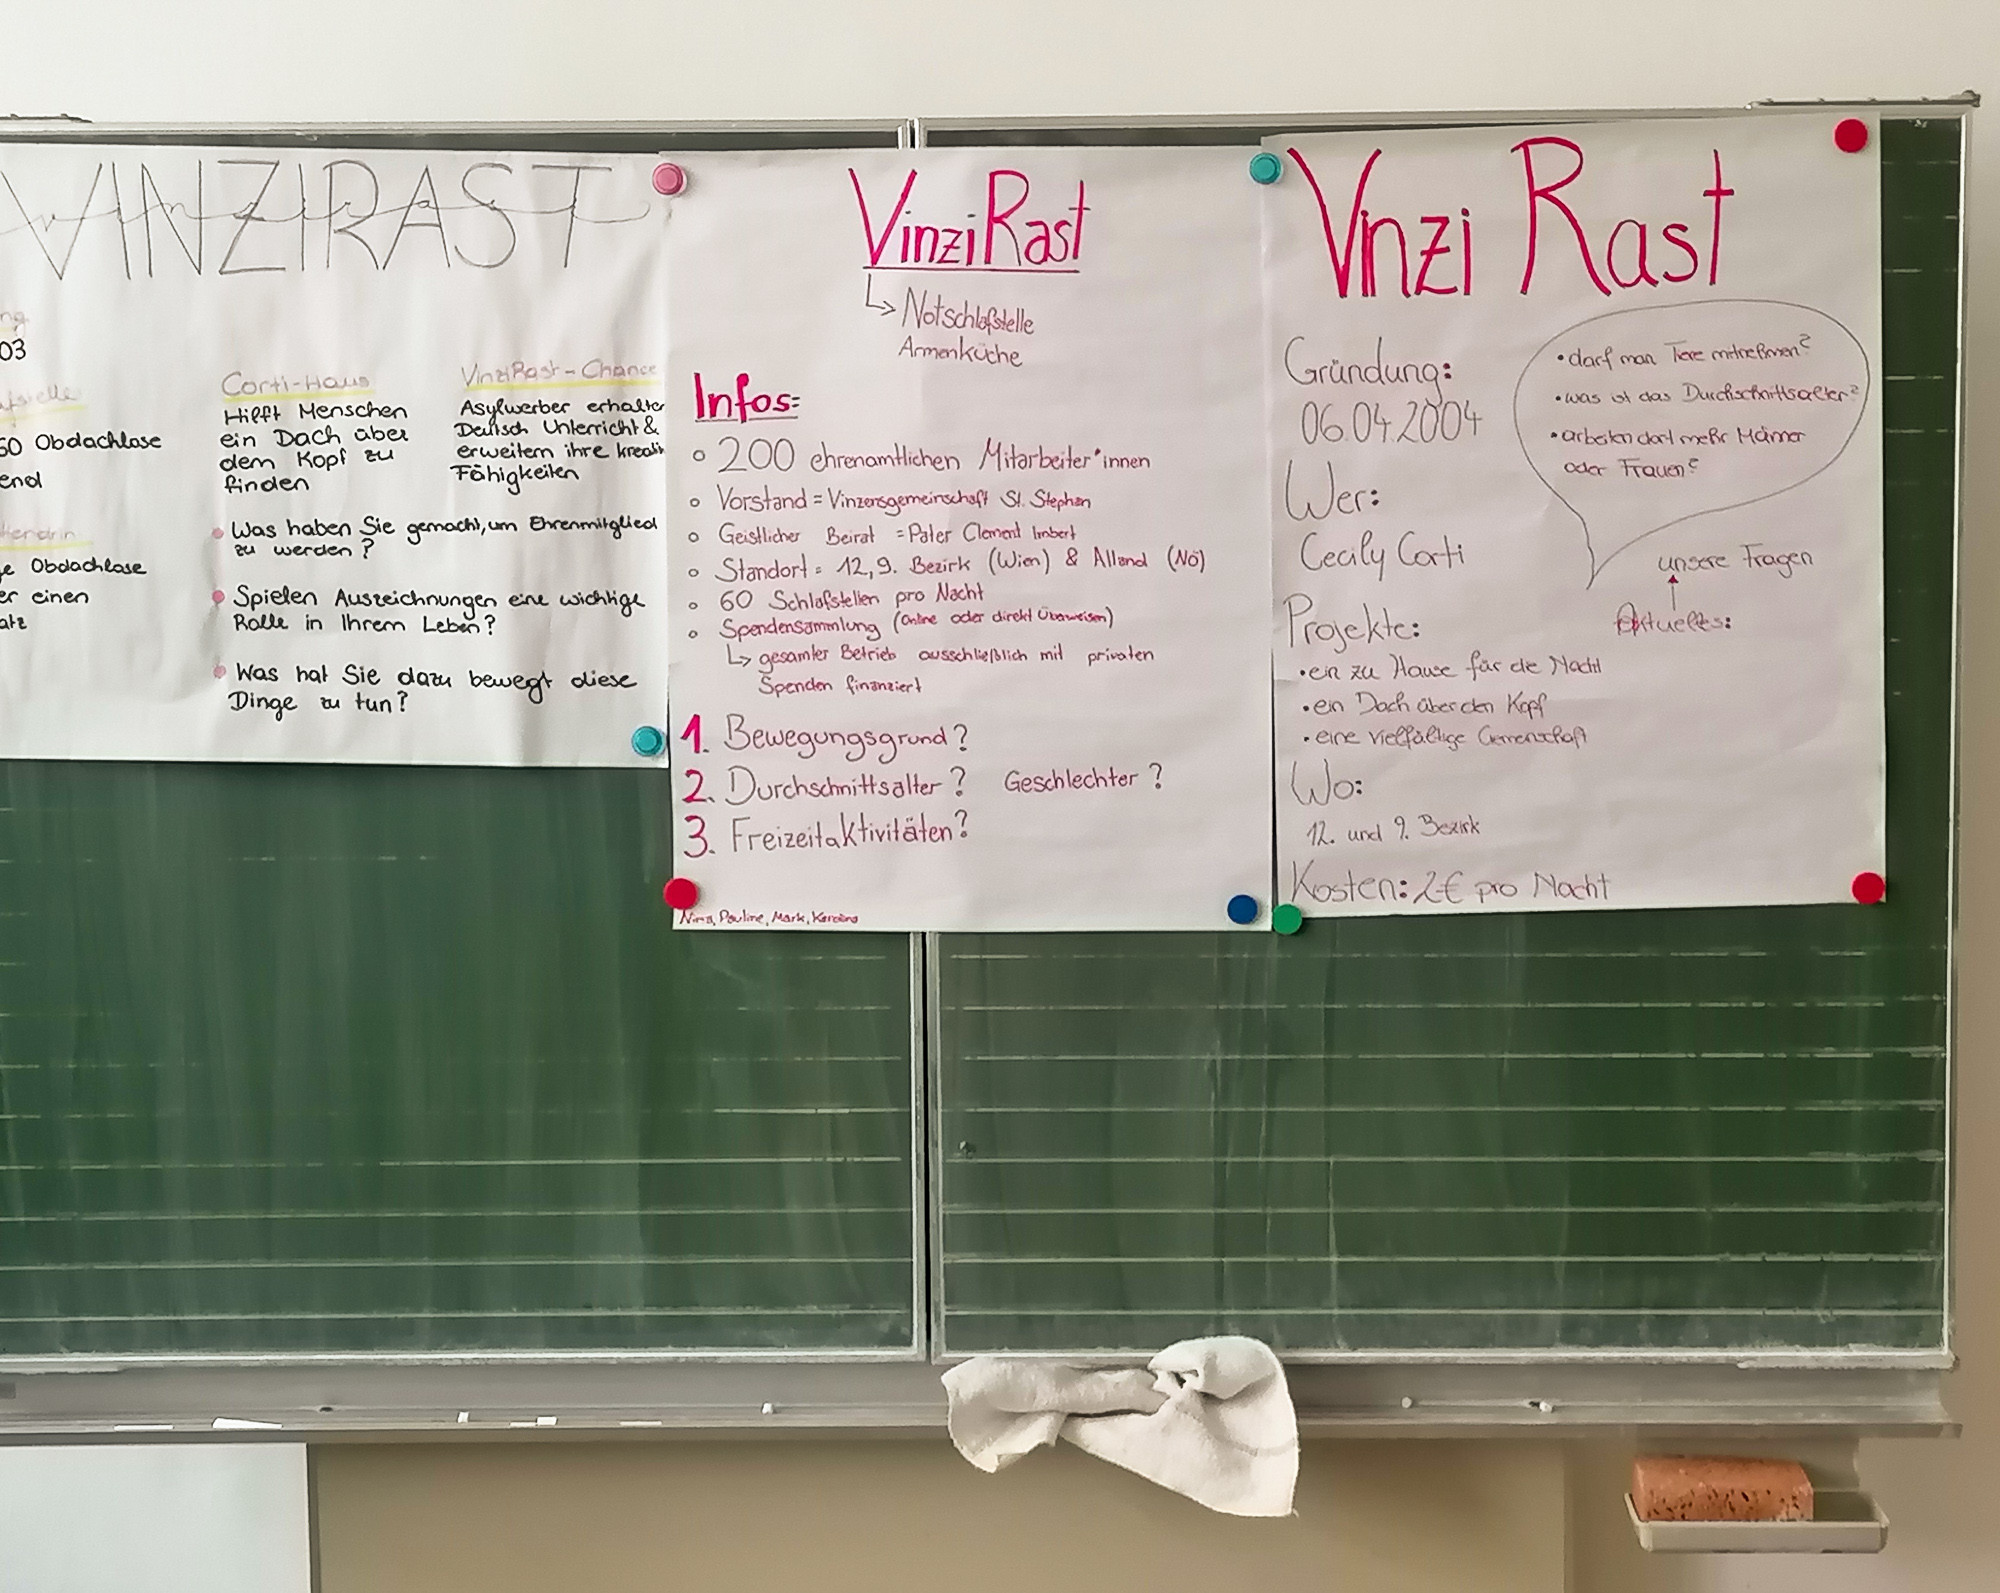 VINZIRAST
ng
03
60 Obdachlose
end
e Obdachlose
er einen
atz
Corti-Haus
Hilft Menschen
ein Dach über
dem Kopf zu
finden
VinziRast-Chance
Asylwerber erhalte
Deutsch Unterricht &
erweitern ihre kreativ
Fähigkeiten
Was haben Sie gemacht, um Ehrenmitglied
zu werden?
Spielen Auszeichnungen eine wichtige
Rolle in Ihrem Leben?
Was hat Sie dazu bewegt diese
Dinge zu tun?
VinziRast
↳ Notschlafstelle
Armenküche
Infos:
200 ehrenamtlichen Mitarbeiter*innen
Vorstand = Vinzensgemeinschaft St. Stephan
Geistlicher Beirat = Pater Clement Imbert
Standort = 12, 9. Bezirk (Wien) & Alland (NÖ)
60 Schlafstellen pro Nacht
Spendensammlung (Online oder direkt Überweisen)
↳ gesamter Betrieb ausschließlich mit privaten
Spenden finanziert
1. Bewegungsgrund?
2. Durchschnittsalter? Geschlechter?
3. Freizeitaktivitäten?
Nina, Pauline, Mark, Karolina
Vinzi Rast
Gründung:
06.04.2004
Wer:
Cecily Corti
Projekte:
• ein zu Hause für die Nacht
• ein Dach über den Kopf
• eine vielfältige Gemenschaft
Wo:
12. und 9. Bezirk
Kosten: 2€ pro Nacht
• darf man Tiere mitnehmen?
• was ist das Durchschnittsalter?
• arbeiten dort mehr Männer
oder Frauen?
unsere Fragen
Aktuelles: